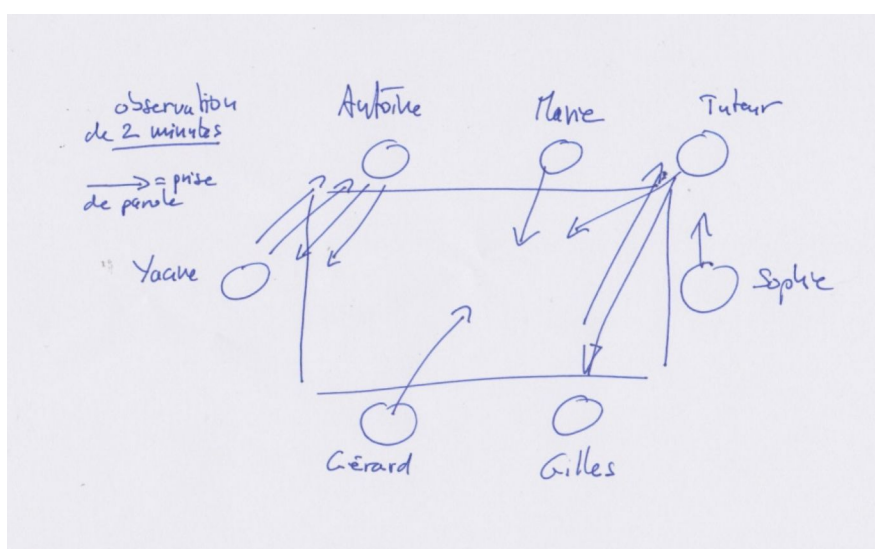 observation
de 2 minutes
= prise
de parole
Antoine
Marie
Tuteur
Yacine
Sophie
Gérard
Gilles